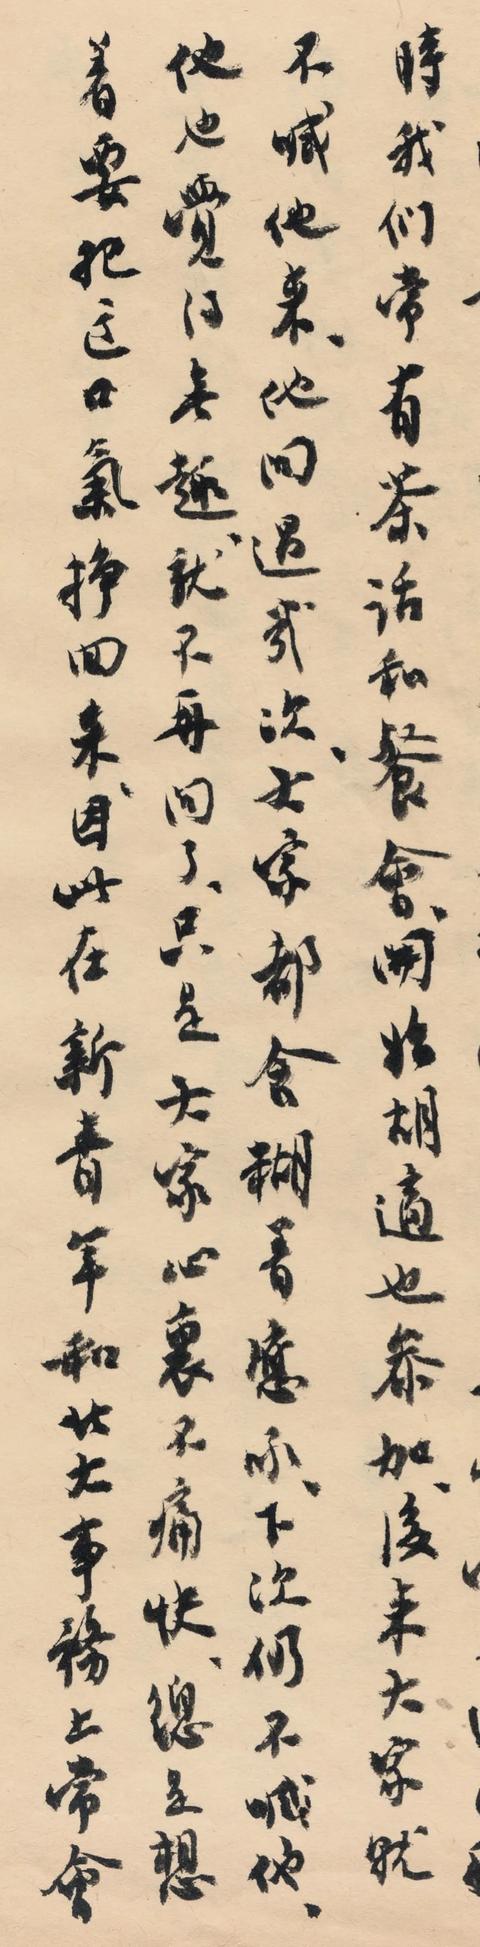 時我们常有茶话和餐會、開始胡適也参加、後来大家就
不喊他来、他问過幾次、大家都含糊着應承、下次仍不喊他、
他也覺得無趣、就不再问了、只是大家心裏不痛快、總是想
着要把这口氣掙回来、因此在新青年和北大事務上常會